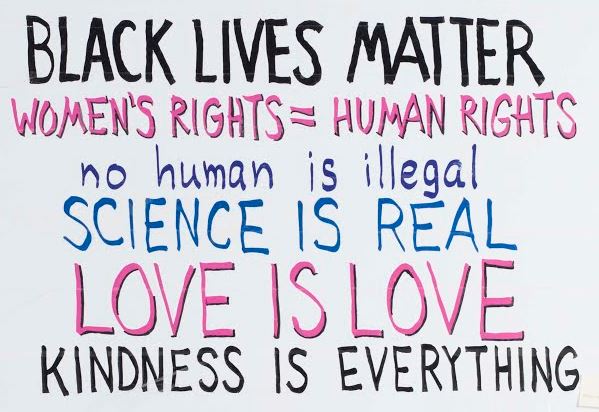 BLACK LIVES MATTER
WOMEN'S RIGHTS = HUMAN RIGHTS
no human is illegal
SCIENCE IS REAL
LOVE IS LOVE
KINDNESS IS EVERYTHING